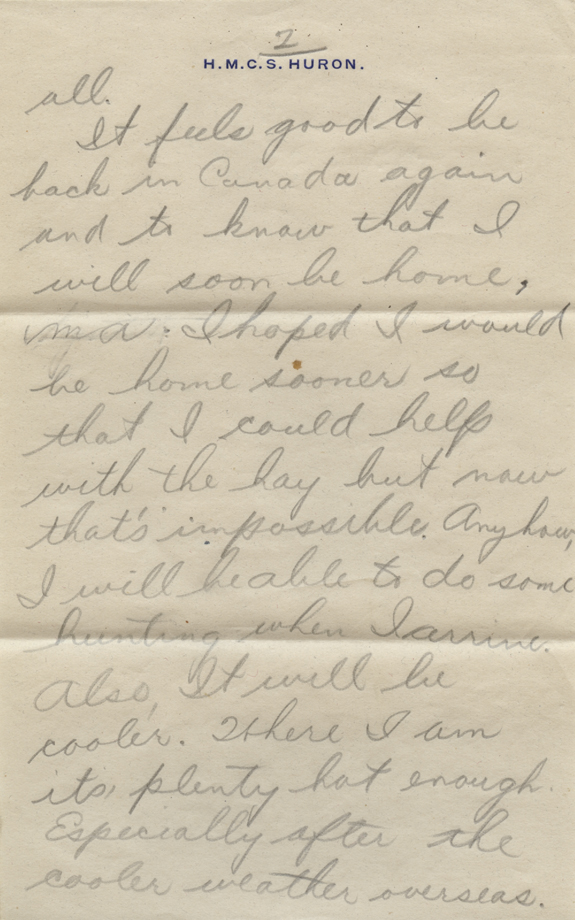 2
H.M.C.S. HURON.
all.
It feels good to be
back in Canada again
and to know that I
will soon be home,
ma. I hoped I would
be home sooner so
that I could help
with the hay but now
that's impossible. Anyhow,
I will be able to do some
hunting when I arrive.
Also, It will be
cooler. Where I am
its plenty hot enough.
Especially after the
cooler weather overseas.